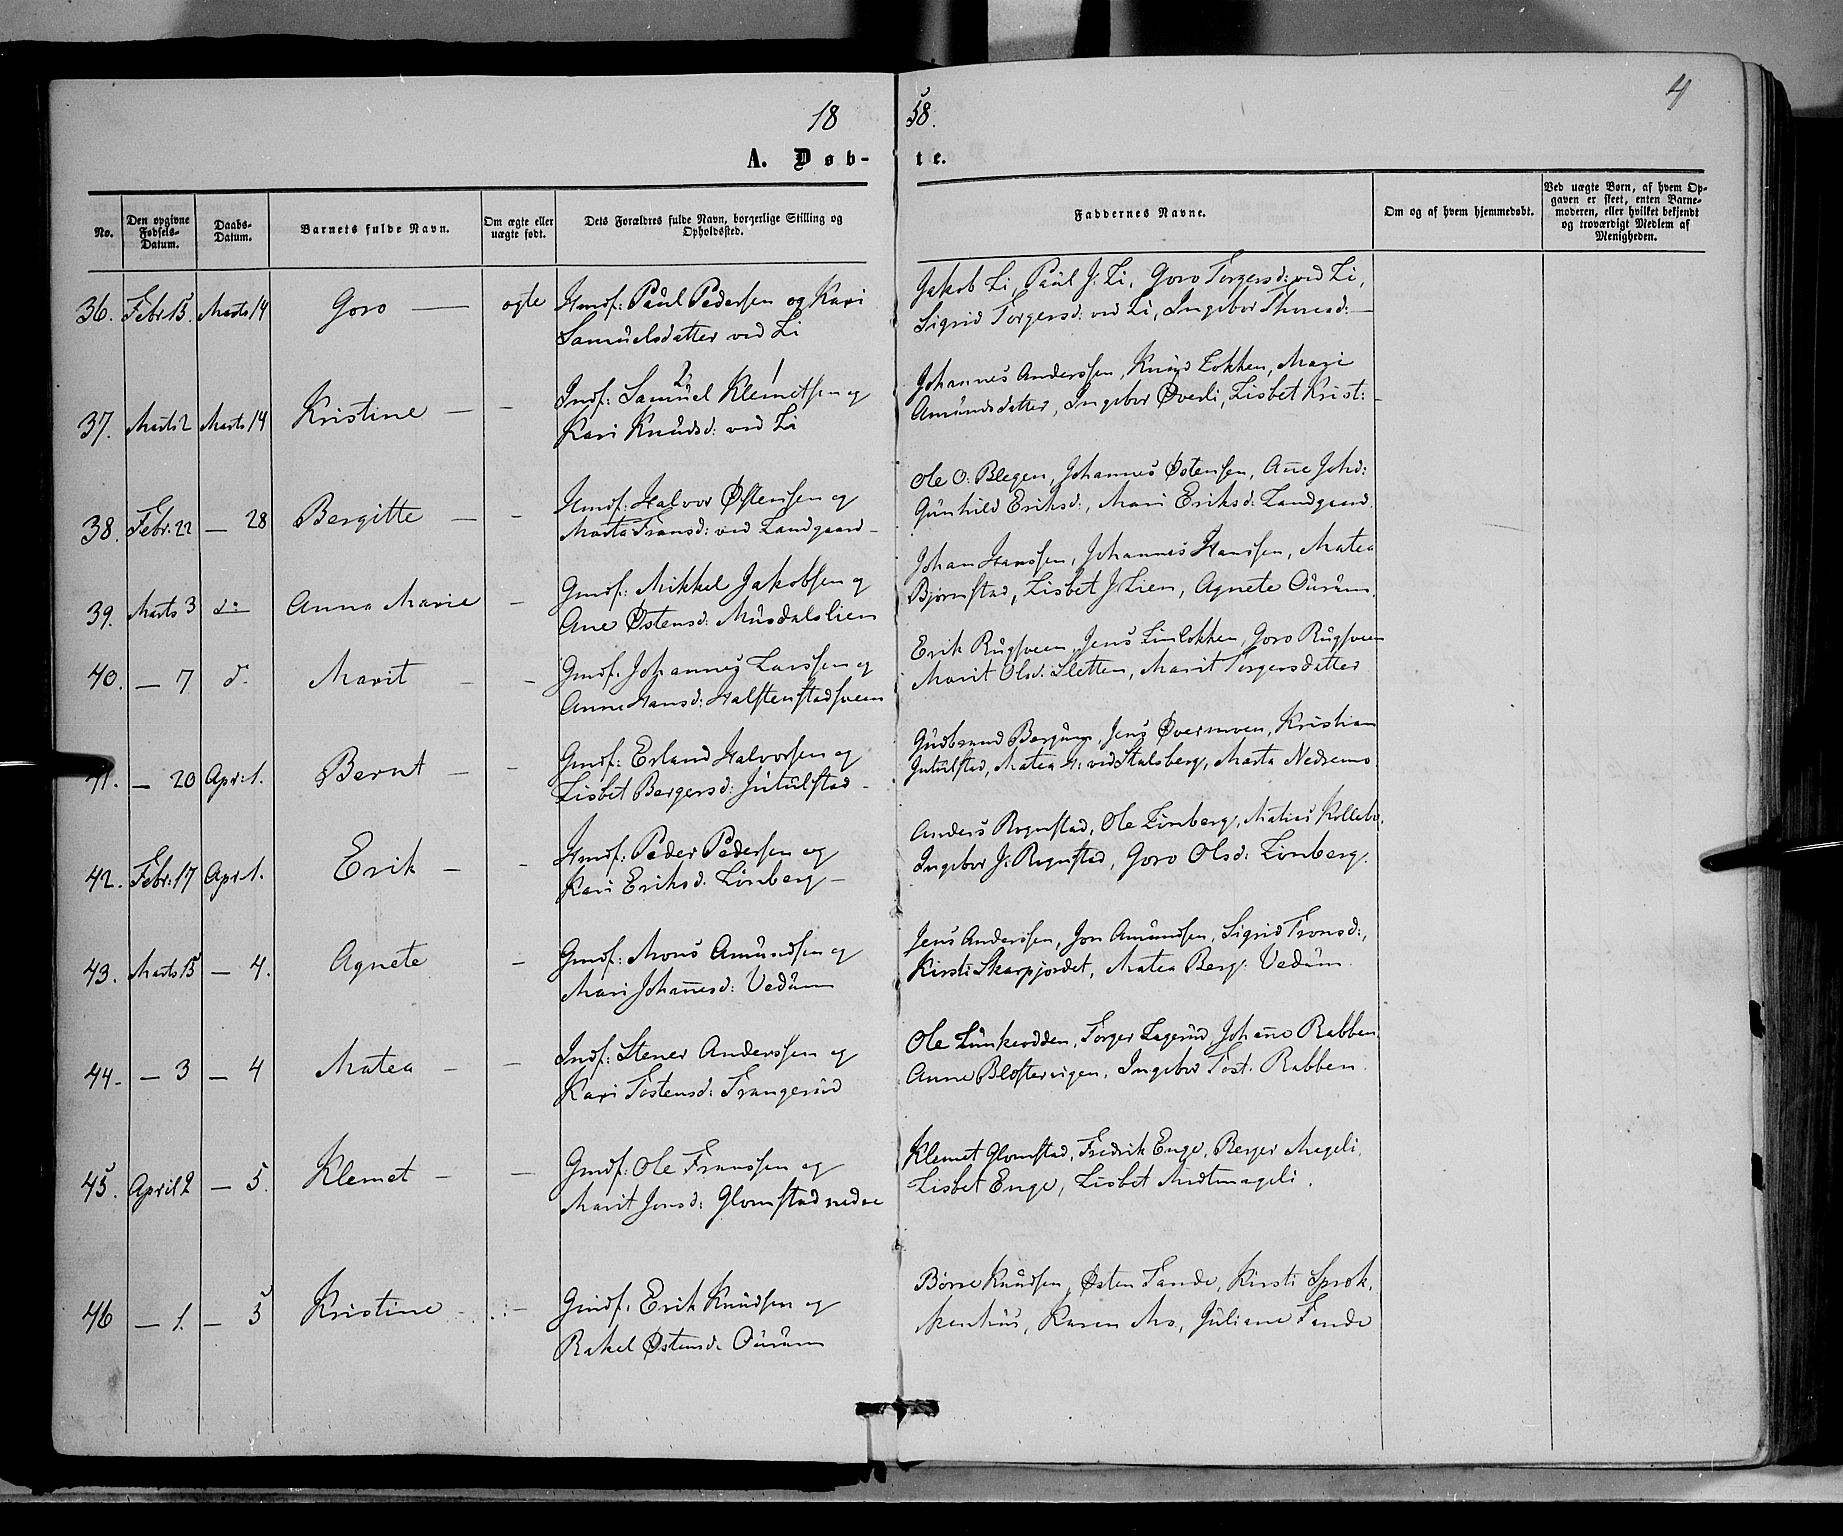 18 58.
4
A. Døb- te.
No.
Den opgivne Fødsels-Datum.
Daabs-Datum.
Barnets fulde Navn.
Om ægte eller uægte født.
Dets Forældres fulde Navn, borgerlige Stilling og Opholdssted.
Faddernes Navne.
Om og af hvem hjemmedøbt.
Ved uægte Børn, af hvem Opgaven er skeet, enten Barnemoderen, eller hvilket bekjendt og troværdigt Medlem af Menigheden.
36. Febr 15. Marts 14 Goro — ægte Hmdf: Paul Pedersen og Kari
Samuelsdatter ved Li
Jakob Li, Paul J: Li, Goro Torgersd: ved Li,
Sigrid Torgersd: ved Li, Ingebor Thoresd: —
37. Marts 2 Marts 14 Kristine — — Indf: Samuel Klemetsen og
Kari Knudsd: ved Li
Johannes Anderssen, Knud Løkken, Mari
Amundsdatter, Ingebor Øverli, Lisbet Krist:
38. Febr: 22 — 28 Bergitte — — Hmdf: Halvor Østensen og
Marta Fransd: ved Landgaard —
Ole O: Blegen, Johannes Østensen, Ane Johd:
Gunhild Eriksd:, Mari Eriksd: Landgaard.
39. Marts 3 do Anna Marie — Gmdf: Mikkel Jakobsen og
Ane Østensd: Musdalslien
Johan Hanssen, Johannes Hanssen, Matea
Bjørnstad, Lisbet J: Lien, Agnete Ourum.
40. — 7 d. Marit — — Gmdf: Johannes Larssen og
Anne Hansd: Halstenstadsveen
Erik Rugsveen, Jens Linløkken, Goro Rugsveen
Marit Olsd: Sletten, Marit Torgersdatter
41. — 20 Apr: 1. Bernt — — Gmdf: Erland Halvorsen og
Lisbet Bergersd: Jutulstad —
Gudbrand Berget, Jens Øvermoen, Kristian
Jutulstad, Matea H: ved Stalsberg, Marta Nedremo
42. Febr: 17 Apr: 1. Erik — — Hmdf: Peder Pedersen og
Kari Eriksd: Lønberg —
Anders Rognstad, Ole Lønberg, Matias Kollebo,
Ingebor J: Rognstad, Goro Olsd: Lønberg.
43. Marts 15 — 4. Agnete — Gmdf: Mons Amundsen og
Mari Johanesd: Vedum
Jens Anderssen, Jon Amundsen, Sigrid Tronsd:,
Kirsti Skarpjordet, Matea Berg: Vedum.
44. — 3 — 4 Matea — — Indf: Stener Anderssen og
Kari Tostensd: Trangerud
Ole Lunkeødden, Torger Lagerud, Johane Rabben.
Anne Blostervigen, Ingebor Tost: Rabben.
45. April 2 — 5. Klemet — — Gmdf: Ole Franssen og
Marit Jonsd: Glomstad nedre
Klemet Glomstad, Fredrik Enge, Berger Mageli,
Lisbet Enge, Lisbet Midtmageli.
46 — 1. — 5 Kristine — — Gmdf: Erik Knudsen og
Rakel Østensd: Ourum
Børre Knudsen, Østen Tande, Kirsti Sprok,
Karen Mo, Juliane Tande